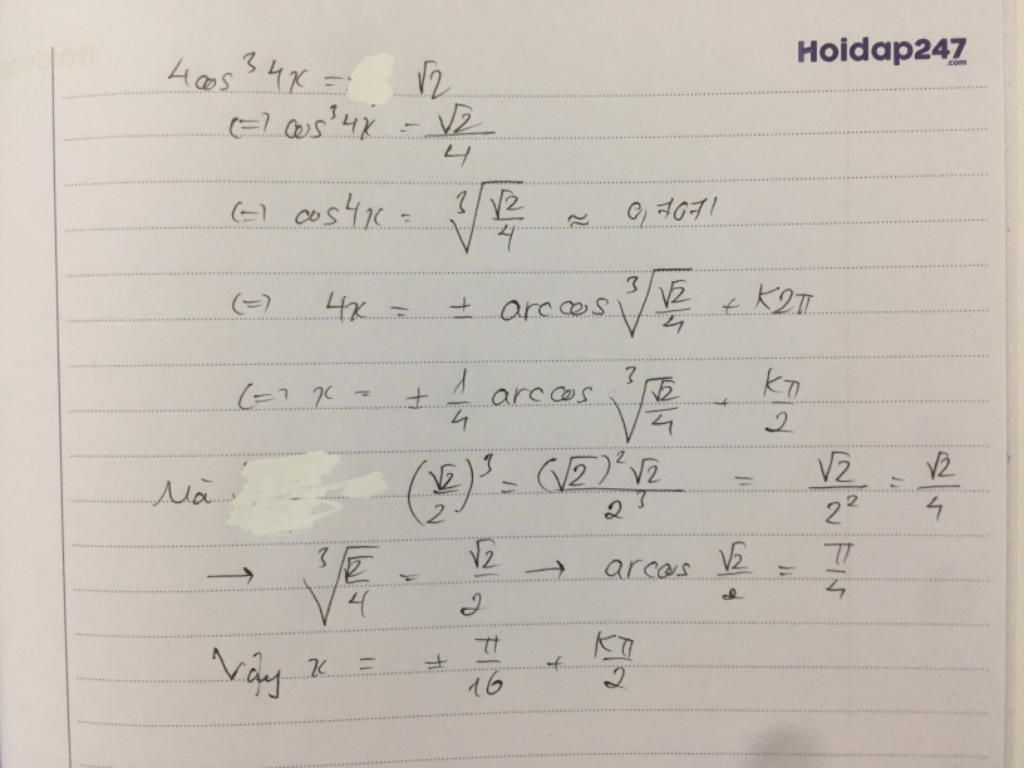 Hoidap247
.com
4cos³4x = √2
(=) cos³4x = √2/4
(=) cos4x = ∛(√2/4) ≈ 0,7071
(=) 4x = ± arccos ∛(√2/4) + K2π
(=) x = ± 1/4 arccos ∛(√2/4) + Kπ/2
Mà (√2/2)³ = (√2)²√2/2³ = √2/2² = √2/4
→ ∛(√2/4) = √2/2 → arccos √2/2 = π/4
Vậy x = ± π/16 + Kπ/2